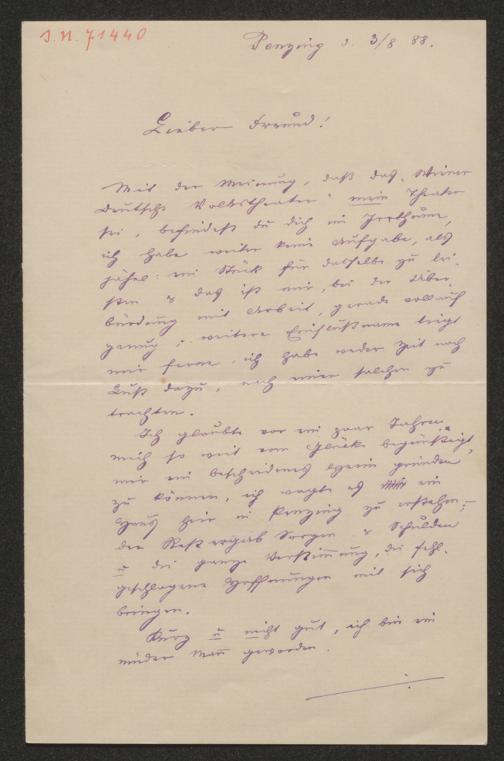 J.N. 71440
Penzing d. 3/8 88.
Lieber Freund!
Mit der Meinung, daß das „Wiener
deutsche Volkstheater" mein Theater
sei, befindest du dich im Irrthume,
ich habe weiter keine Aufgabe, als
jährl. ein Stück für dasselbe zu lei-
sten & das ist mir, bei der Über-
bürdung mit Arbeit, gerade vollauf
genug; weitere Einflußname liegt
mir ferne, ich habe weder Zeit noch
Lust dazu, nach einer solchen zu
trachten.
Ich glaubte vor ein paar Jahren
mich so weit vom Glücke begünstigt,
mir ein bescheidenes Heim gründen
zu können, ich wagte es ein
Haus hier in Penzing zu erstehen;
der Rest ergab Sorgen & Schulden
u die ganze Verstimmung, die fehl-
geschlagene Hoffnungen mit sich
bringen.
Kurz u nicht gut, ich bin ein
müder Mann geworden.